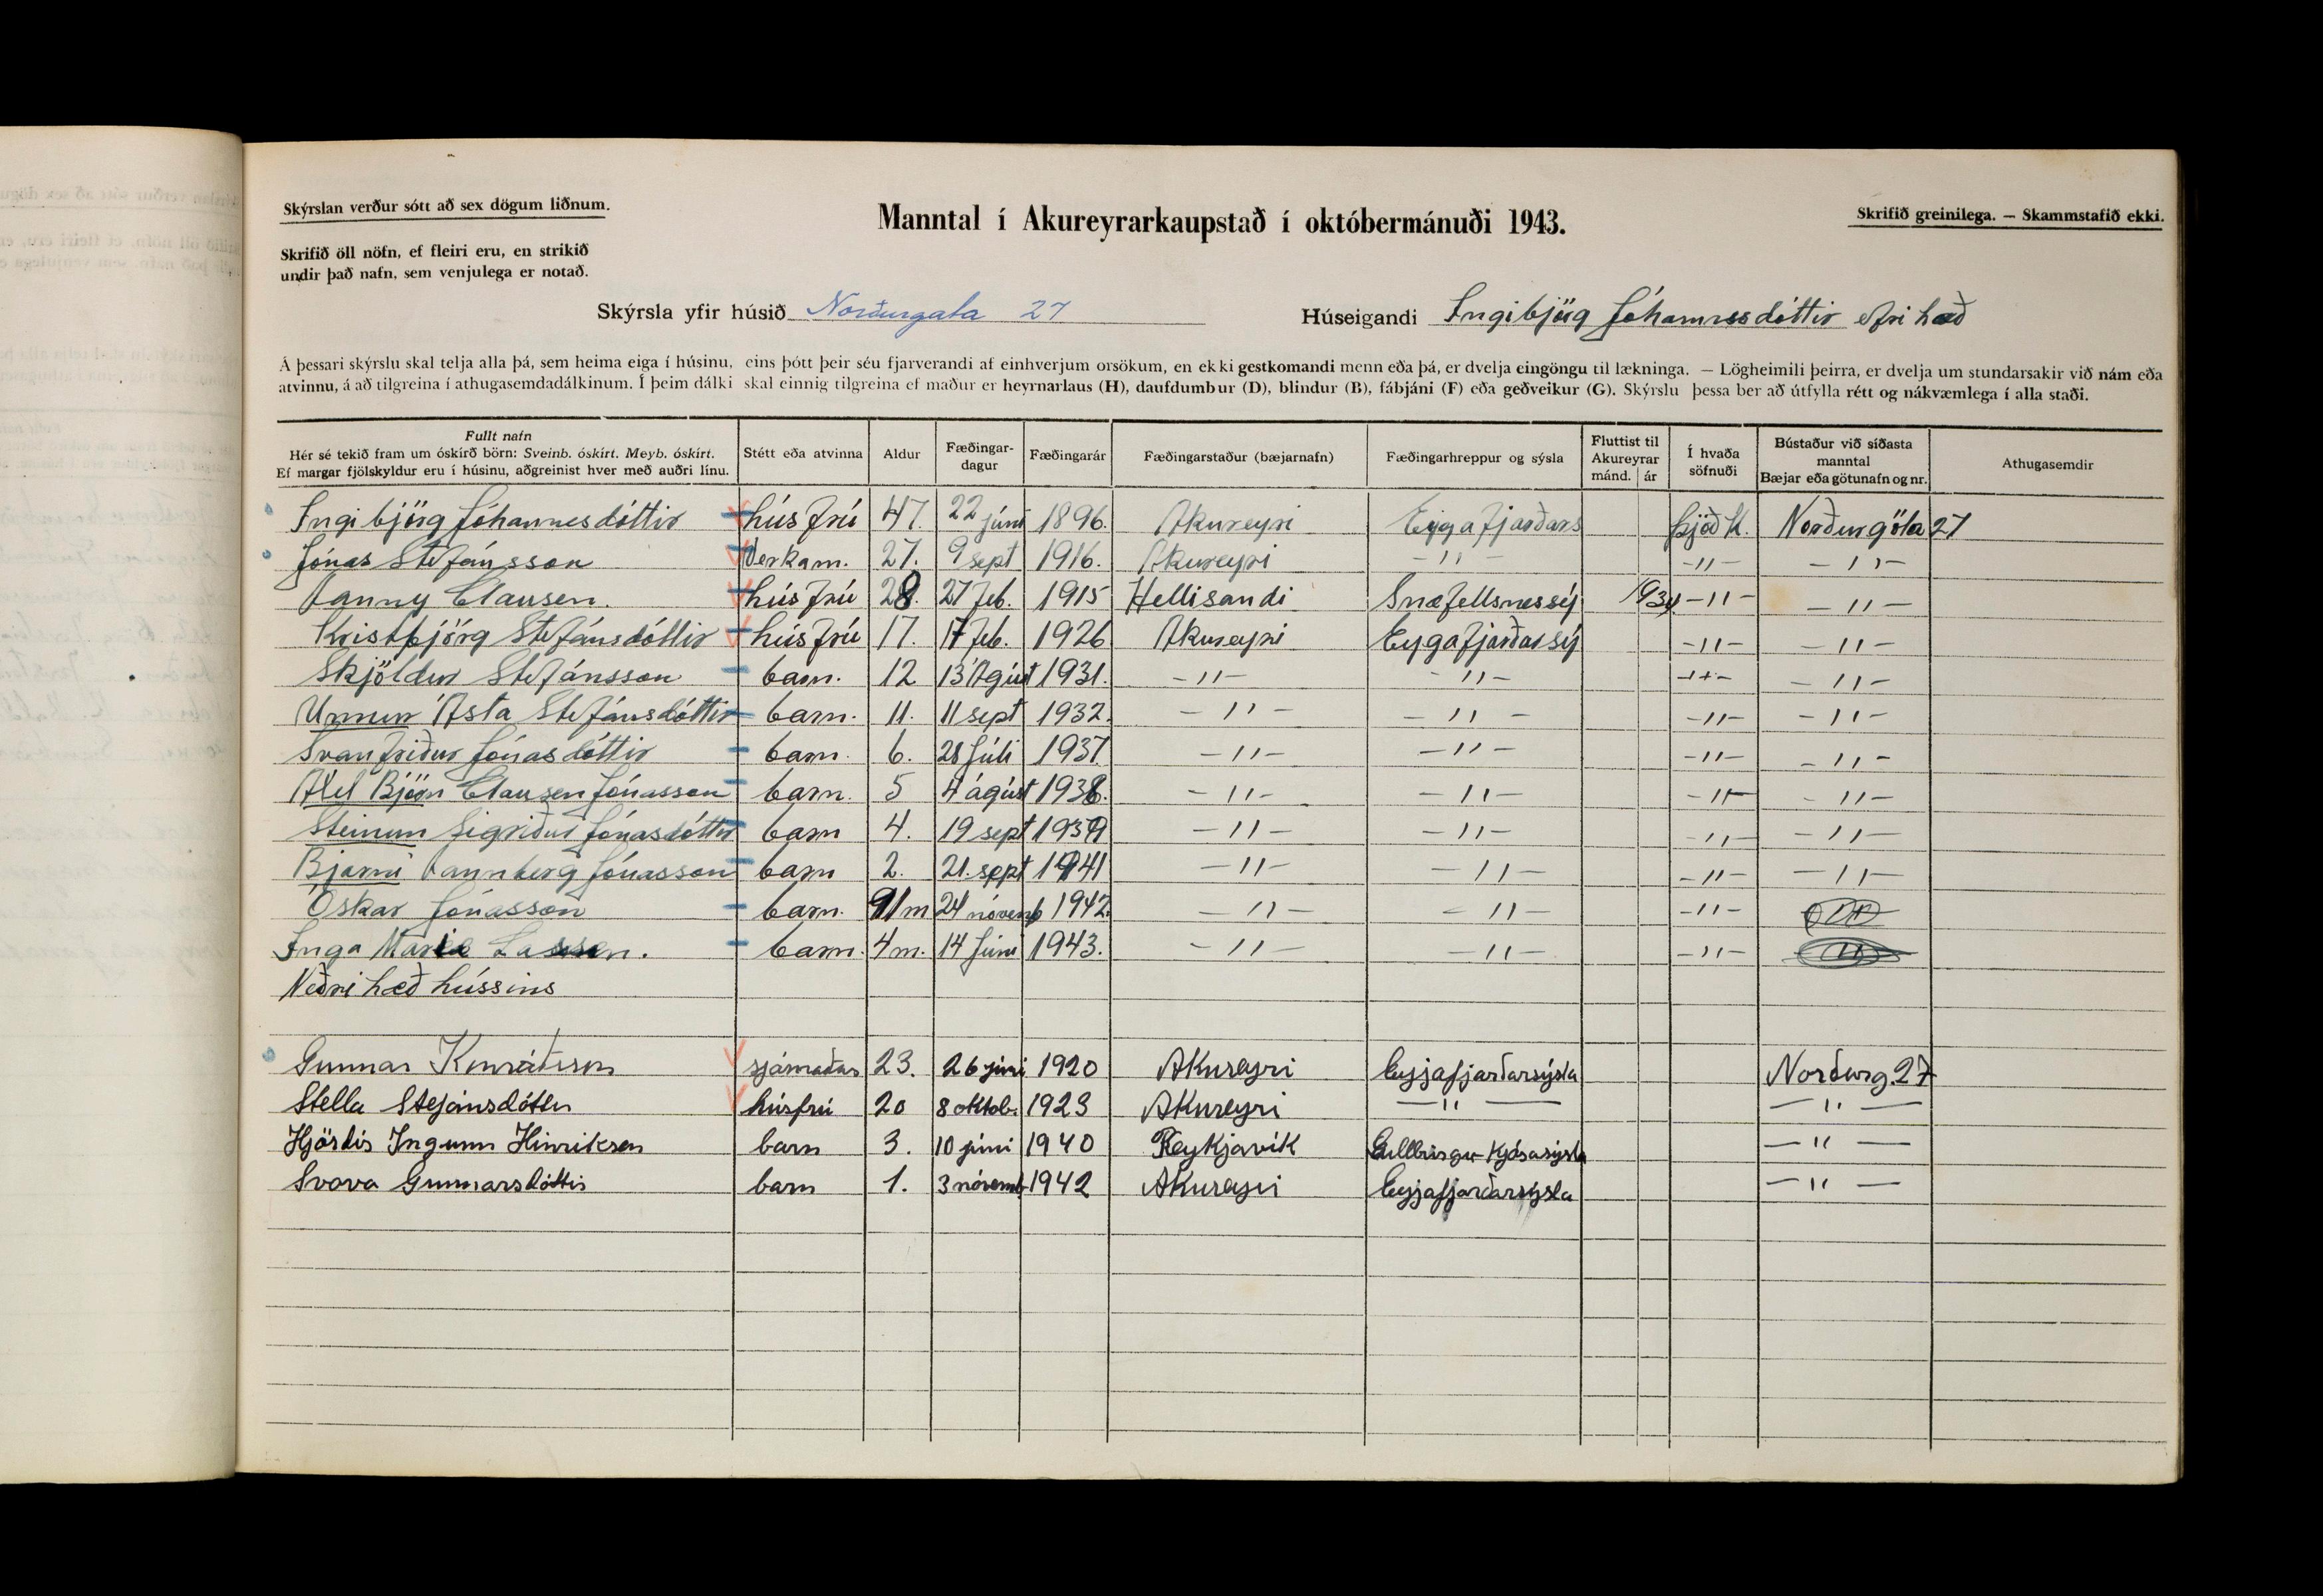 Skýrslan verður sótt að sex dögum liðnum.
Manntal í Akureyrarkaupstað í októbermánuði 1943.
Skrifið greinilega. — Skammstafið ekki.
Skrifið öll nöfn, ef fleiri eru, en strikið
undir það nafn, sem venjulega er notað.
Skýrsla yfir húsið Norðurgata 27
Húseigandi Ingibjörg Jóhannesdóttir efri hæð
Á þessari skýrslu skal telja alla þá, sem heima eiga í húsinu, eins þótt þeir séu fjarverandi af einhverjum orsökum, en ekki gestkomandi menn eða þá, er dvelja eingöngu til lækninga. — Lögheimili þeirra, er dvelja um stundarsakir við nám eða
atvinnu, á að tilgreina í athugasemdadálkinum. Í þeim dálki skal einnig tilgreina ef maður er heyrnarlaus (H), daufdumbur (D), blindur (B), fábjáni (F) eða geðveikur (G). Skýrslu þessa ber að útfylla rétt og nákvæmlega í alla staði.
Fullt nafn
Hér sé tekið fram um óskírð börn: Sveinb. óskírt. Meyb. óskírt.
Ef margar fjölskyldur eru í húsinu, aðgreinist hver með auðri línu.
Stétt eða atvinna
Aldur
Fæðingar-
dagur
Fæðingarár
Fæðingarstaður (bæjarnafn)
Fæðingarhreppur og sýsla
Fluttist til
Akureyrar
mánd. ár
Í hvaða
söfnuði
Bústaður við síðasta
manntal
Bæjar eða götunafn og nr.
Athugasemdir
Ingibjörg Jóhannesdóttir húsfrú 47. 22 júní 1896. Akureyri Eyjafjarðars þjóðk. Norðurgöta 27
Jónas Stefánsson Verkam. 27. 9 sept 1916. Akureyri -"- -"- -"-
Fanny Clausen. húsfrú 28. 27 feb. 1915 Hellisandi Snæfellsnessý 1934 -"- -"-
Kristbjörg Stefánsdóttir húsfrú 17. 17 feb. 1926 Akureyri Eyjafjarðarsý -"- -"-
Skjöldur Stefánsson barn. 12 13 Ágúst 1931. -"- -"- -"- -"-
Unnur Ásta Stefánsdóttir barn. 11. 11 sept 1932. -"- -"- -"- -"-
Svanfríður Jónasdóttir barn. 6. 28 Júli 1937. -"- -"- -"- -"-
Axel Björn Clausen Jónasson barn. 5 4 ágúst 1938. -"- -"- -"- -"-
Steinun Sigriður Jónasdóttir barn 4. 19 sept 1939 -"- -"- -"- -"-
Bjarni Fannberg Jónasson barn 2. 21. sept 1941 -"- -"- -"- -"-
Óskar Jónasson barn. 11 m 24 novemb 1942. -"- -"- -"-
Inga Maria Lassen. barn. 4 m. 14 Júní 1943. -"- -"- -"-
Neðri hæð hússins
Gunnar Konráðsson sjómaður 23. 26 júní 1920 Akureyri Eyjafjarðarsýsla Norðurg. 27
Stella Stefánsdóttir húsfrú 20 8 oktob. 1923 Akureyri -"- -"-
Hjördís Ingunn Hinriksen barn 3. 10 júní 1940 Reykjavík Gullbringu-Kjósasýsla -"-
Svava Gunnarsdóttir barn 1. 3 nóvemb 1942 Akureyri Eyjafjarðarsýsla -"-